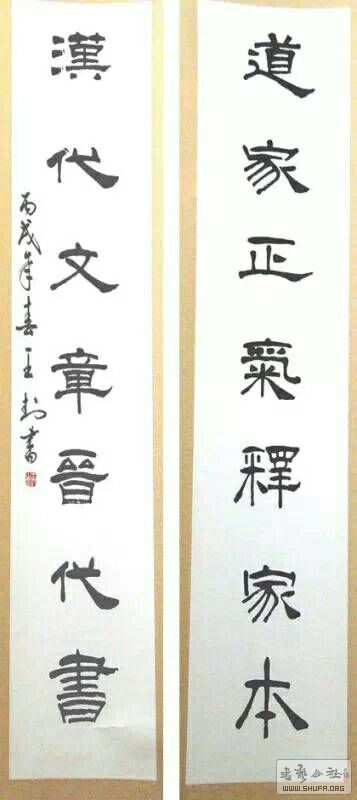 道家正氣釋家本
漢代文章晉代書
丙戌年春王書
书藝公社
WWW.SHUFA.ORG